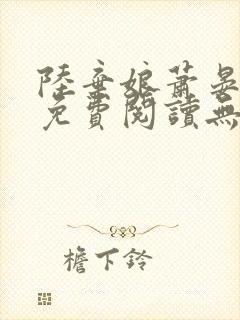 陸棄娘蕭晏
免費閱讀無
檐下鈴